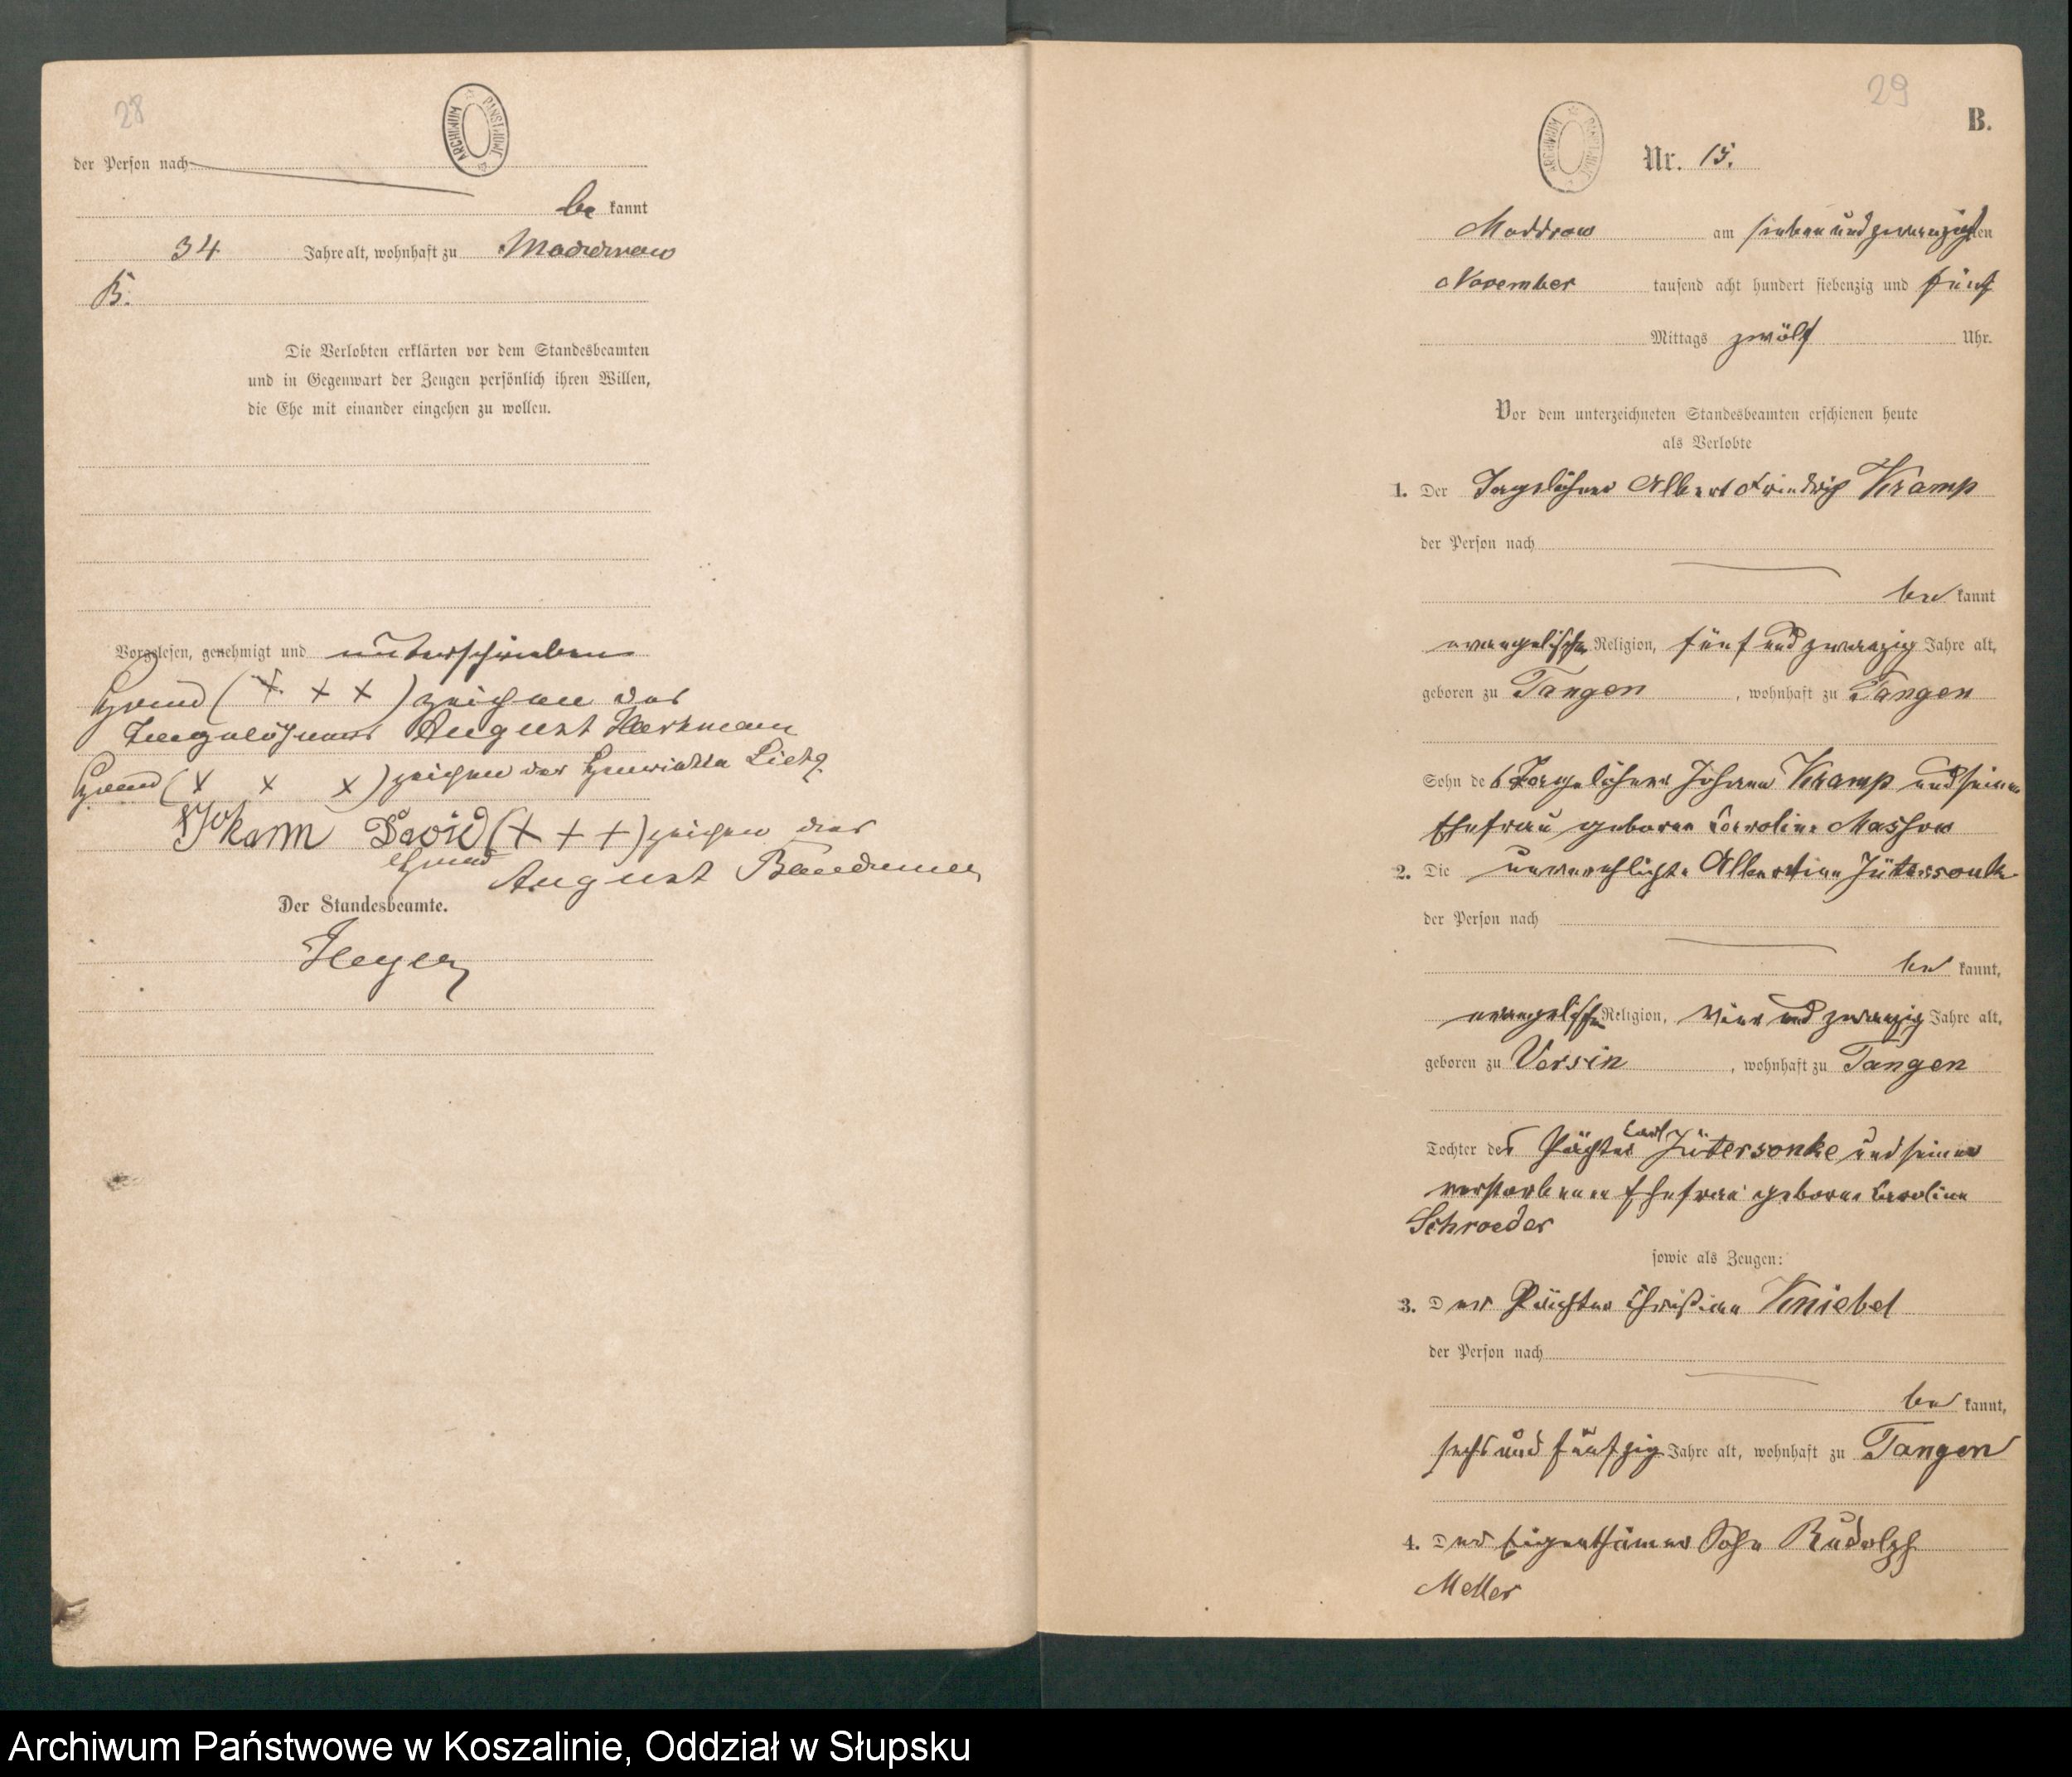 28
ARCHIWUM PAŃSTWOWE
der Person nach
be kannt
34 Jahre alt, wohnhaft zu Moddrow
B.
Die Verlobten erklärten vor dem Standesbeamten
und in Gegenwart der Zeugen persönlich ihren Willen,
die Ehe mit einander eingehen zu wollen.
Vorgelesen, genehmigt und unterschrieben
Hand (+ + +) zeichen des
Tagelöhners August
Hand (+ + +) zeichen der Henriette Lietz
Johann David (+ + +) zeichen des
Hand August
Der Standesbeamte.
Heyer
29
B.
ARCHIWUM PAŃSTWOWE
Nr. 15.
Moddrow am sieben und zwanzigsten
November tausend acht hundert siebenzig und fünf
Mittags zwölf Uhr.
Vor dem unterzeichneten Standesbeamten erschienen heute
als Verlobte
1. Der Tagelöhner Albert Friedrich Kramp
der Person nach
be kannt
evangelischer Religion, fünf und zwanzig Jahre alt,
geboren zu Tangen, wohnhaft zu Tangen
Sohn des Tagelöhner Johann Kramp und seiner
Ehefrau geborne Caroline Massow
2. Die unverehlichte Albertine Jütersonke
der Person nach
be kannt,
evangelischer Religion, vier und zwanzig Jahre alt,
geboren zu Versin, wohnhaft zu Tangen
Tochter des Pächter Carl Jütersonke und seiner
verstorbenen Ehefrau geborne Caroline
Schroeder
sowie als Zeugen:
3. Der Pächter Christian Kniebel
der Person nach
be kannt,
sechs und fünfzig Jahre alt, wohnhaft zu Tangen
4. Der Eigenthümer Sohn Rudolph
Meller
Archiwum Państwowe w Koszalinie, Oddział w Słupsku